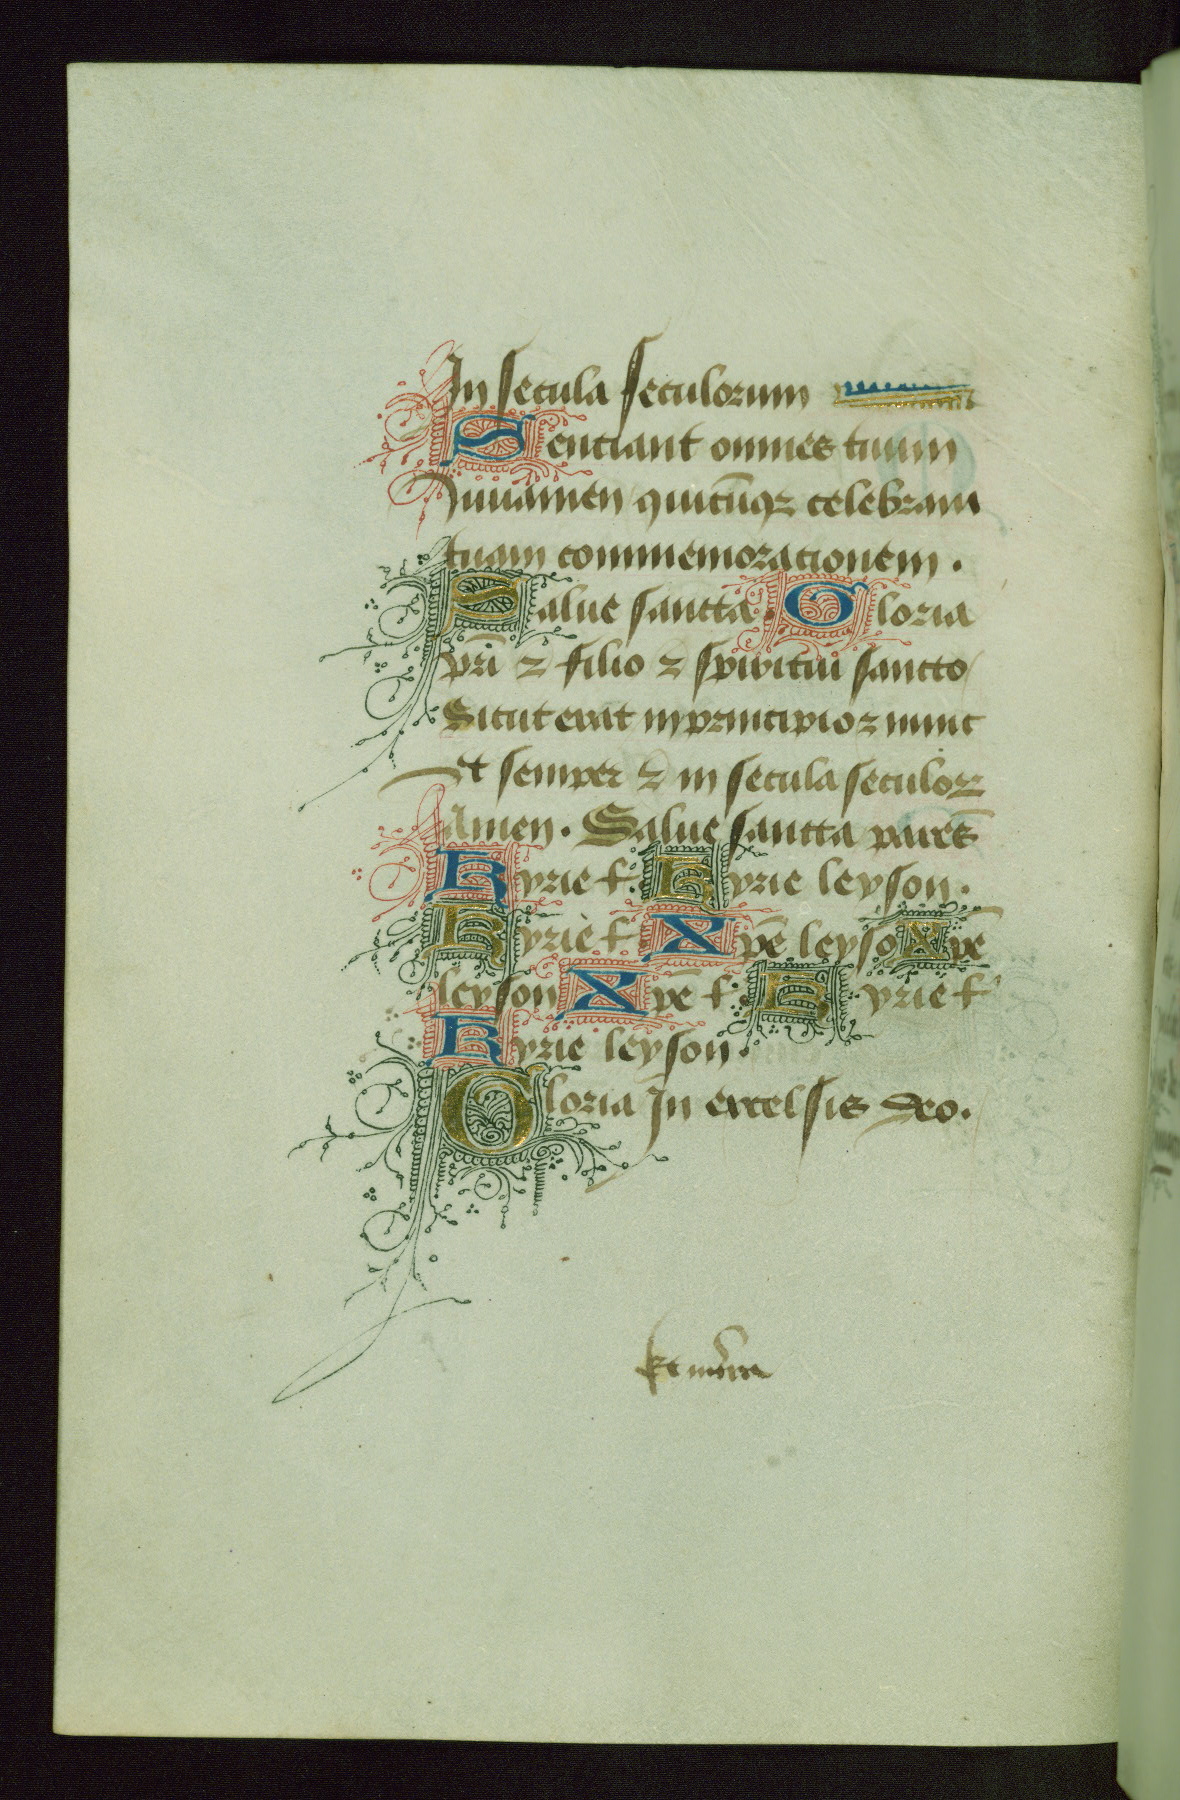 In secula seculorum
Senciant omnes tuum
Iuuamen quicūqꝫ celebrant
tuam commemoracionem .
Salue sancta . Gloria
pri̅ ⁊ filio ⁊ spiritui sancto
Sicut erat in principio ⁊ nunc
et semper ⁊ in secula seculoꝝ
Amen . Salue sancta parēs
Kyrie ł . Kyrie leyson .
Kyrie ł . Xpē leyso Xpē
leyson Xpē ł . Kyrie ł
Kyrie leyson .
Gloria In excelsis deo .
Et in terra